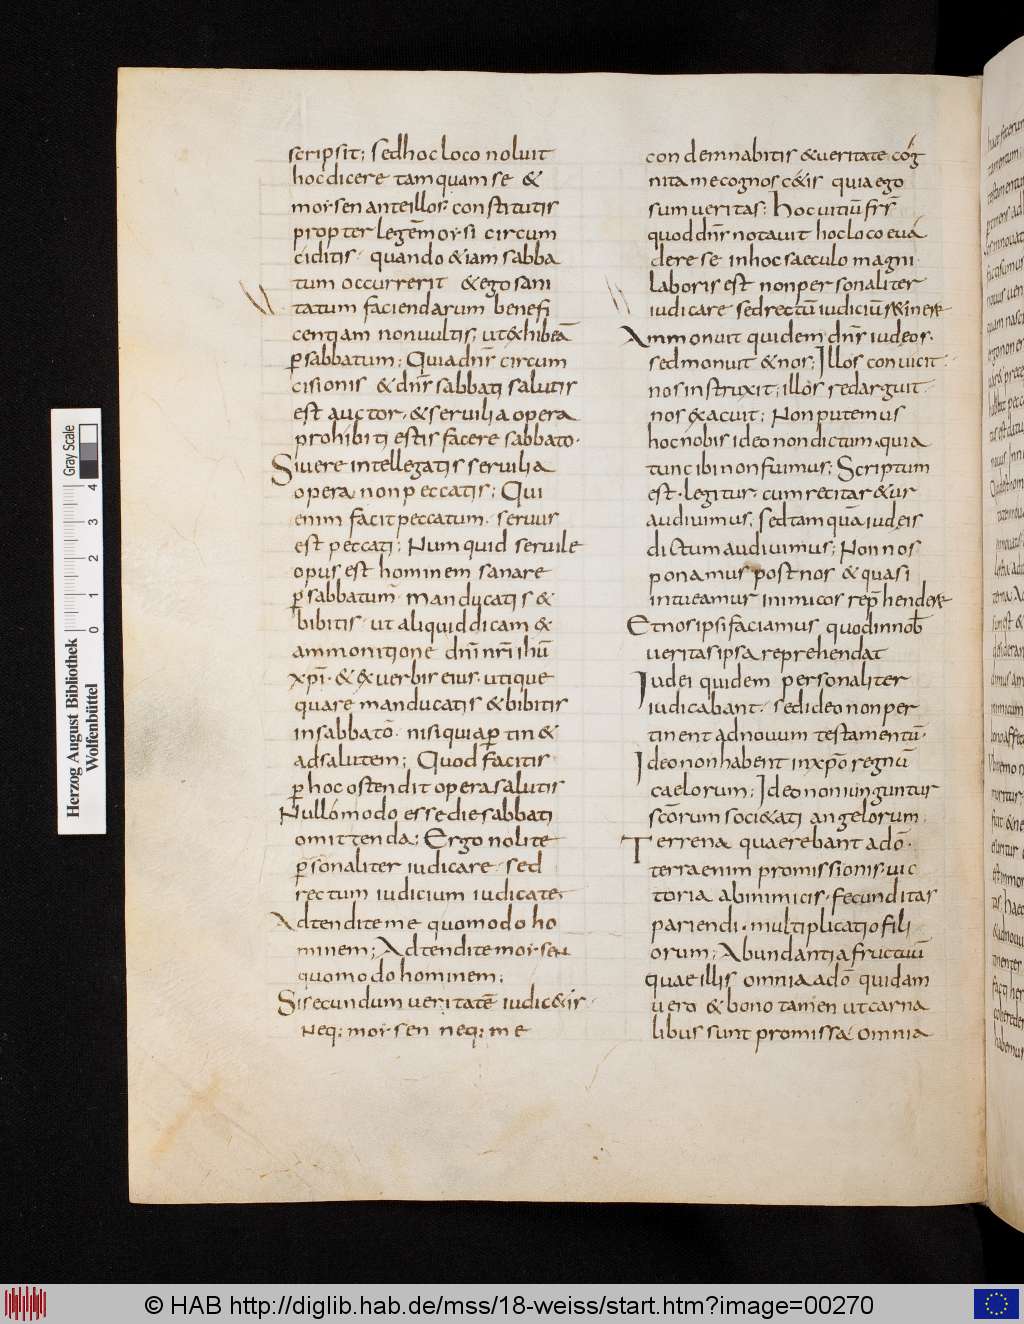 scripsit; sed hoc loco noluit
hoc dicere tamquam se &
morsen ante illos constitutis
propter legē morsi circum
ciditis · quando & iam sabba
tum occurrerit & ego sani
tatum faciendarum benefi
centiam non uultis, ut exhibeā
p̱ sabbatum; Quia dn̄s circum
cisionis & dn̄s sabbati salutis
est auctor, & seruilia opera
prohibiti estis facere sabbato·
Si uere intellegatis seruilia
opera non peccatis; Qui
enim facit peccatum · seruus
est peccati; Numquid seruile
opus est hominem sanare
p̱ sabbatum · manducatis &
bibitis · ut aliquid dicam &
ammonitione dn̄i nr̄i ihū
xp̄i · & ex uerbis eius · utique
quare manducatis & bibitis
in sabbatō · nisi quia p̱tin&
ad salutem; Quod facitis
p̱ hoc ostendit opera salutis
Nullo modo esse die sabbati
omittenda; Ergo nolite
p̱sonaliter iudicare · sed
rectum iudicium iudicate·
Adtendite me quomodo ho
minem; Adtendite morsen
quomodo hominem;
Si secundum ueritatē iudic&is ·
neq; morsen neq; me
condemnabitis & ueritate cog
nita me cognosc&is quia ego
sum ueritas; Hoc uitiū frs̄
quod dn̄s notauit hoc loco eua
dere se in hoc saeculo magni
laboris est non personaliter
iudicare sed rectū iudiciū r&inere
Ammonuit quidem dn̄s iudeos·
sed monuit & nos; Illos conuicit·
nos instruxit; illos redarguit·
nos exacuit; Non putemus
hoc nobis ideo non dictum, quia
tunc ibi non fuimus; Scriptum
est · legitur · cum recitar&ur
audiuimus; sed tamquā iudeis
dictum audiuimus; Non nos
ponamus post nos & quasi
intueamur inimicos rep̄hendere
Et nos ipsi faciamus quod in nob̄
ueritas ipsa reprehendat
Iudei quidem personaliter
iudicabant · sed ideo non per
tinent ad nouum testamentū·
Ideo non habent in xp̄o regnū
caelorum; Ideo non iunguntur
sc̄orum soci&ati angelorum;
Terrena quaerebant a dō·
terra enim promissionis · uic
toria ab inimicis · fecunditas
pariendi · multiplicatio fili
orum; Abundantia fructuū
quae illis omnia a dō quidam
uero & bono tamen ut carna
libus sunt promissa omnia
Herzog August Bibliothek
Wolfenbüttel
Gray Scale
0 1 2 3 4
© HAB http://diglib.hab.de/mss/18-weiss/start.htm?image=00270